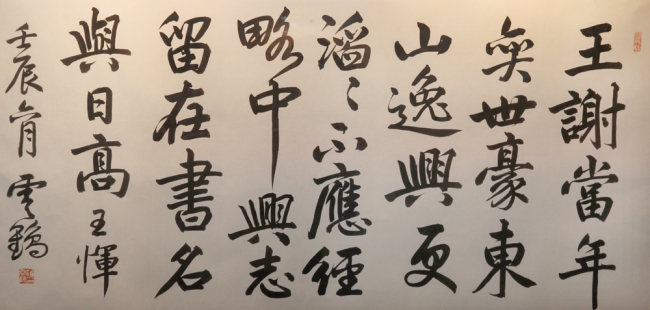 王謝當年
奕世豪東
山逸興更
滔〻不應經
略中興志
留在書名
與日高王惲
壬辰六月雲鶴